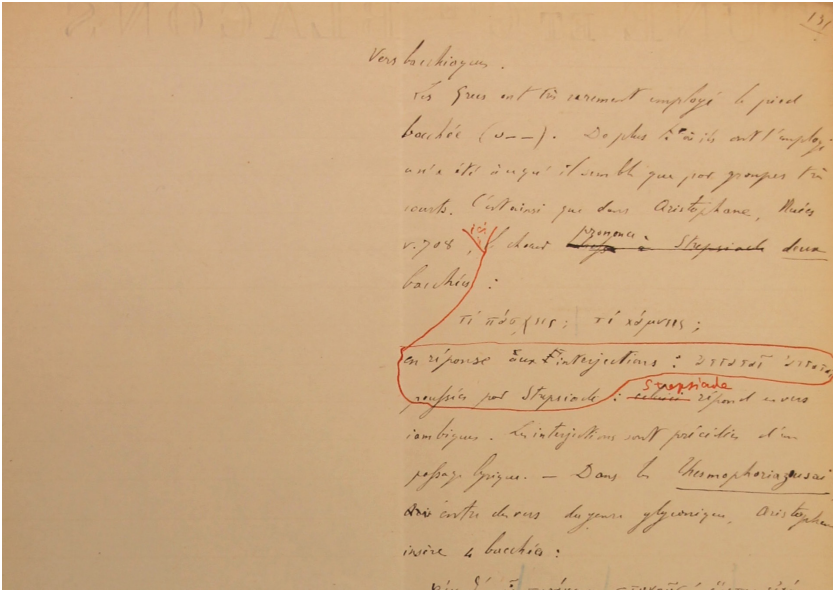 131
Vers bacchiaques.
Les Grecs ont très rarement employé le pied
bacchée (υ――). De plus ils ont l'employ
n'a été à ce qu'il semble que par groupes très
courts. C'est ainsi que dans Aristophane, Nuées
v. 708, ici le chœur prononce à Strepsiade deux
bacchées :
τί πάσχεις; τί κάμνεις;
en réponse aux interjections : ἰατταταῖ ἰατταταῖ
poussées par Strepsiade : Strepsiade répond en vers
iambiques. Les interjections sont précédées d'un
passage lyrique. — Dans les Thesmophoriazusai
entre des vers du genre glyconique, Aristophane
insère 4 bacchées :